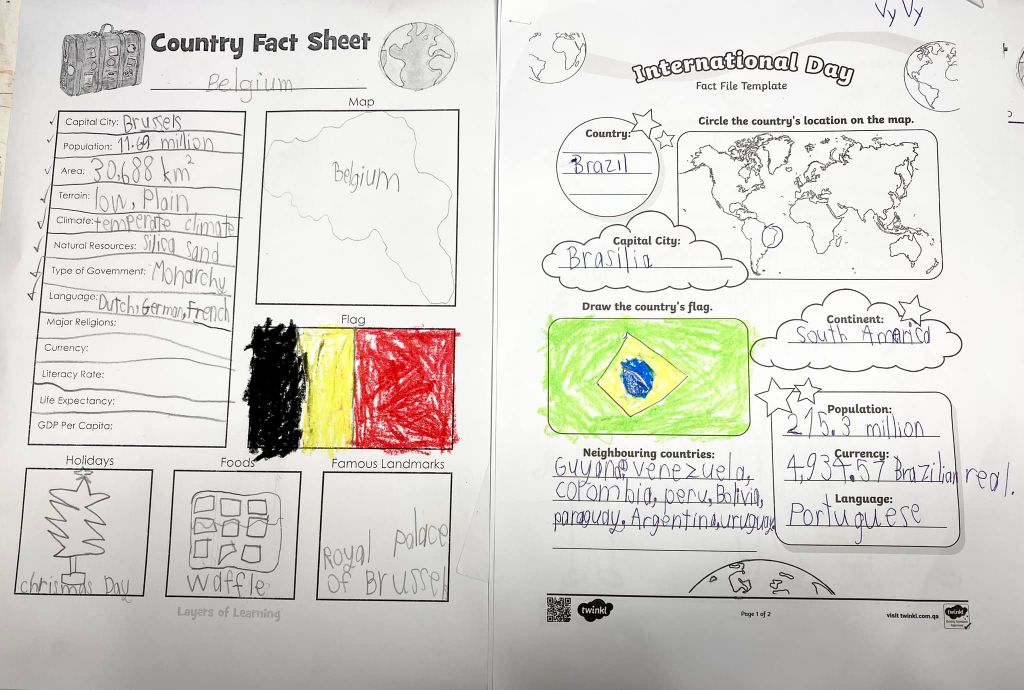 Country Fact Sheet
Belgium
Map
Capital City: Brussels
Population: 11.69 million
Area: 30,688 km²
Terrain: low, Plain
Climate: temperate climate
Natural Resources: silica sand
Type of Government: Monarchy
Language: Dutch, German, French
Major Religions:
Currency:
Literacy Rate:
Life Expectancy:
GDP Per Capita:
Belgium
Flag
Holidays
Foods
Famous Landmarks
chrismas Day
waffle
Royal palace
of Brussel
Layers of Learning
Vy Vy
International Day
Fact File Template
Country:
Brazil
Circle the country's location on the map.
Capital City:
Brasilia
Draw the country's flag.
Continent:
South Amarica
Population:
215.3 million
Currency:
4,934.57 Brazilian real.
Language:
Portuguese
Neighbouring countries:
Guyana, venezuela,
colombia, peru, Bolivia,
paraguay, Argentina, uruguay.
twinkl
Page 1 of 2
visit twinkl.com.qa
twinkl